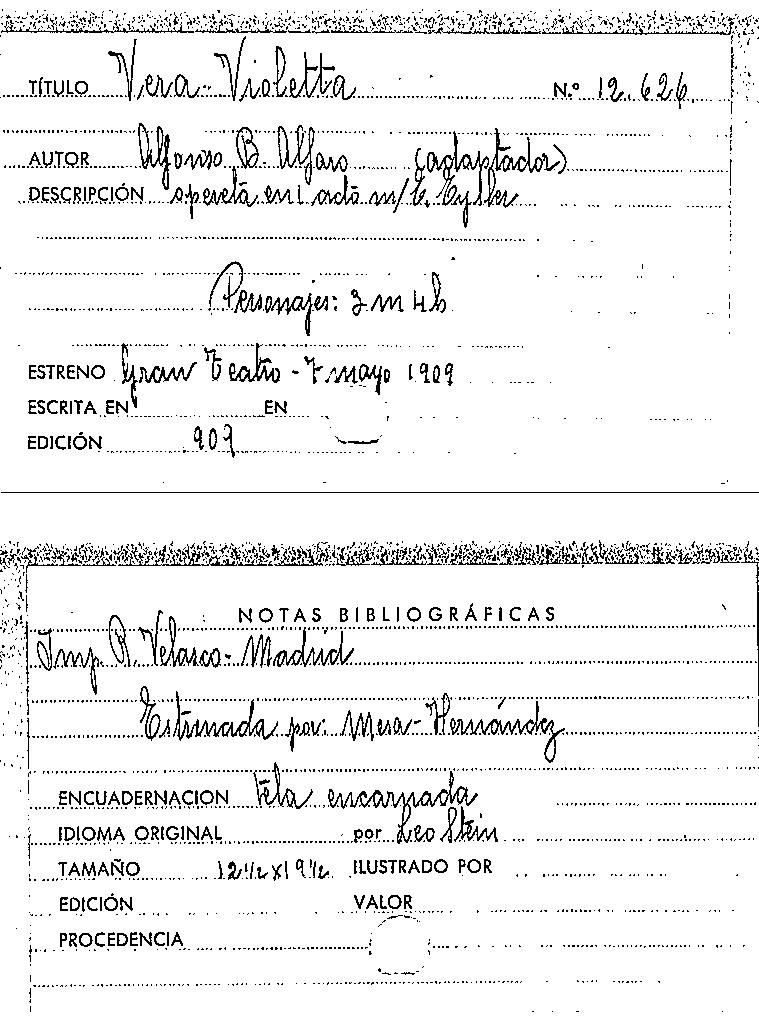 TÍTULO Vera-Violetta N.º 12.626
AUTOR Alfonso B. Alfaro (adaptador)
DESCRIPCIÓN opereta en 1 acto m/ E. Eysler
Personajes: 3 m 4 h
ESTRENO Gran Teatro - 7 mayo 1909
ESCRITA EN EN
EDICIÓN 909
NOTAS BIBLIOGRÁFICAS
Imp. R. Velasco- Madrid
Estrenada por: Mesa-Hernández
ENCUADERNACION tela encarnada
IDIOMA ORIGINAL por Leo Stein
TAMAÑO 12 1/2 x 19 1/2 ILUSTRADO POR
EDICIÓN VALOR
PROCEDENCIA